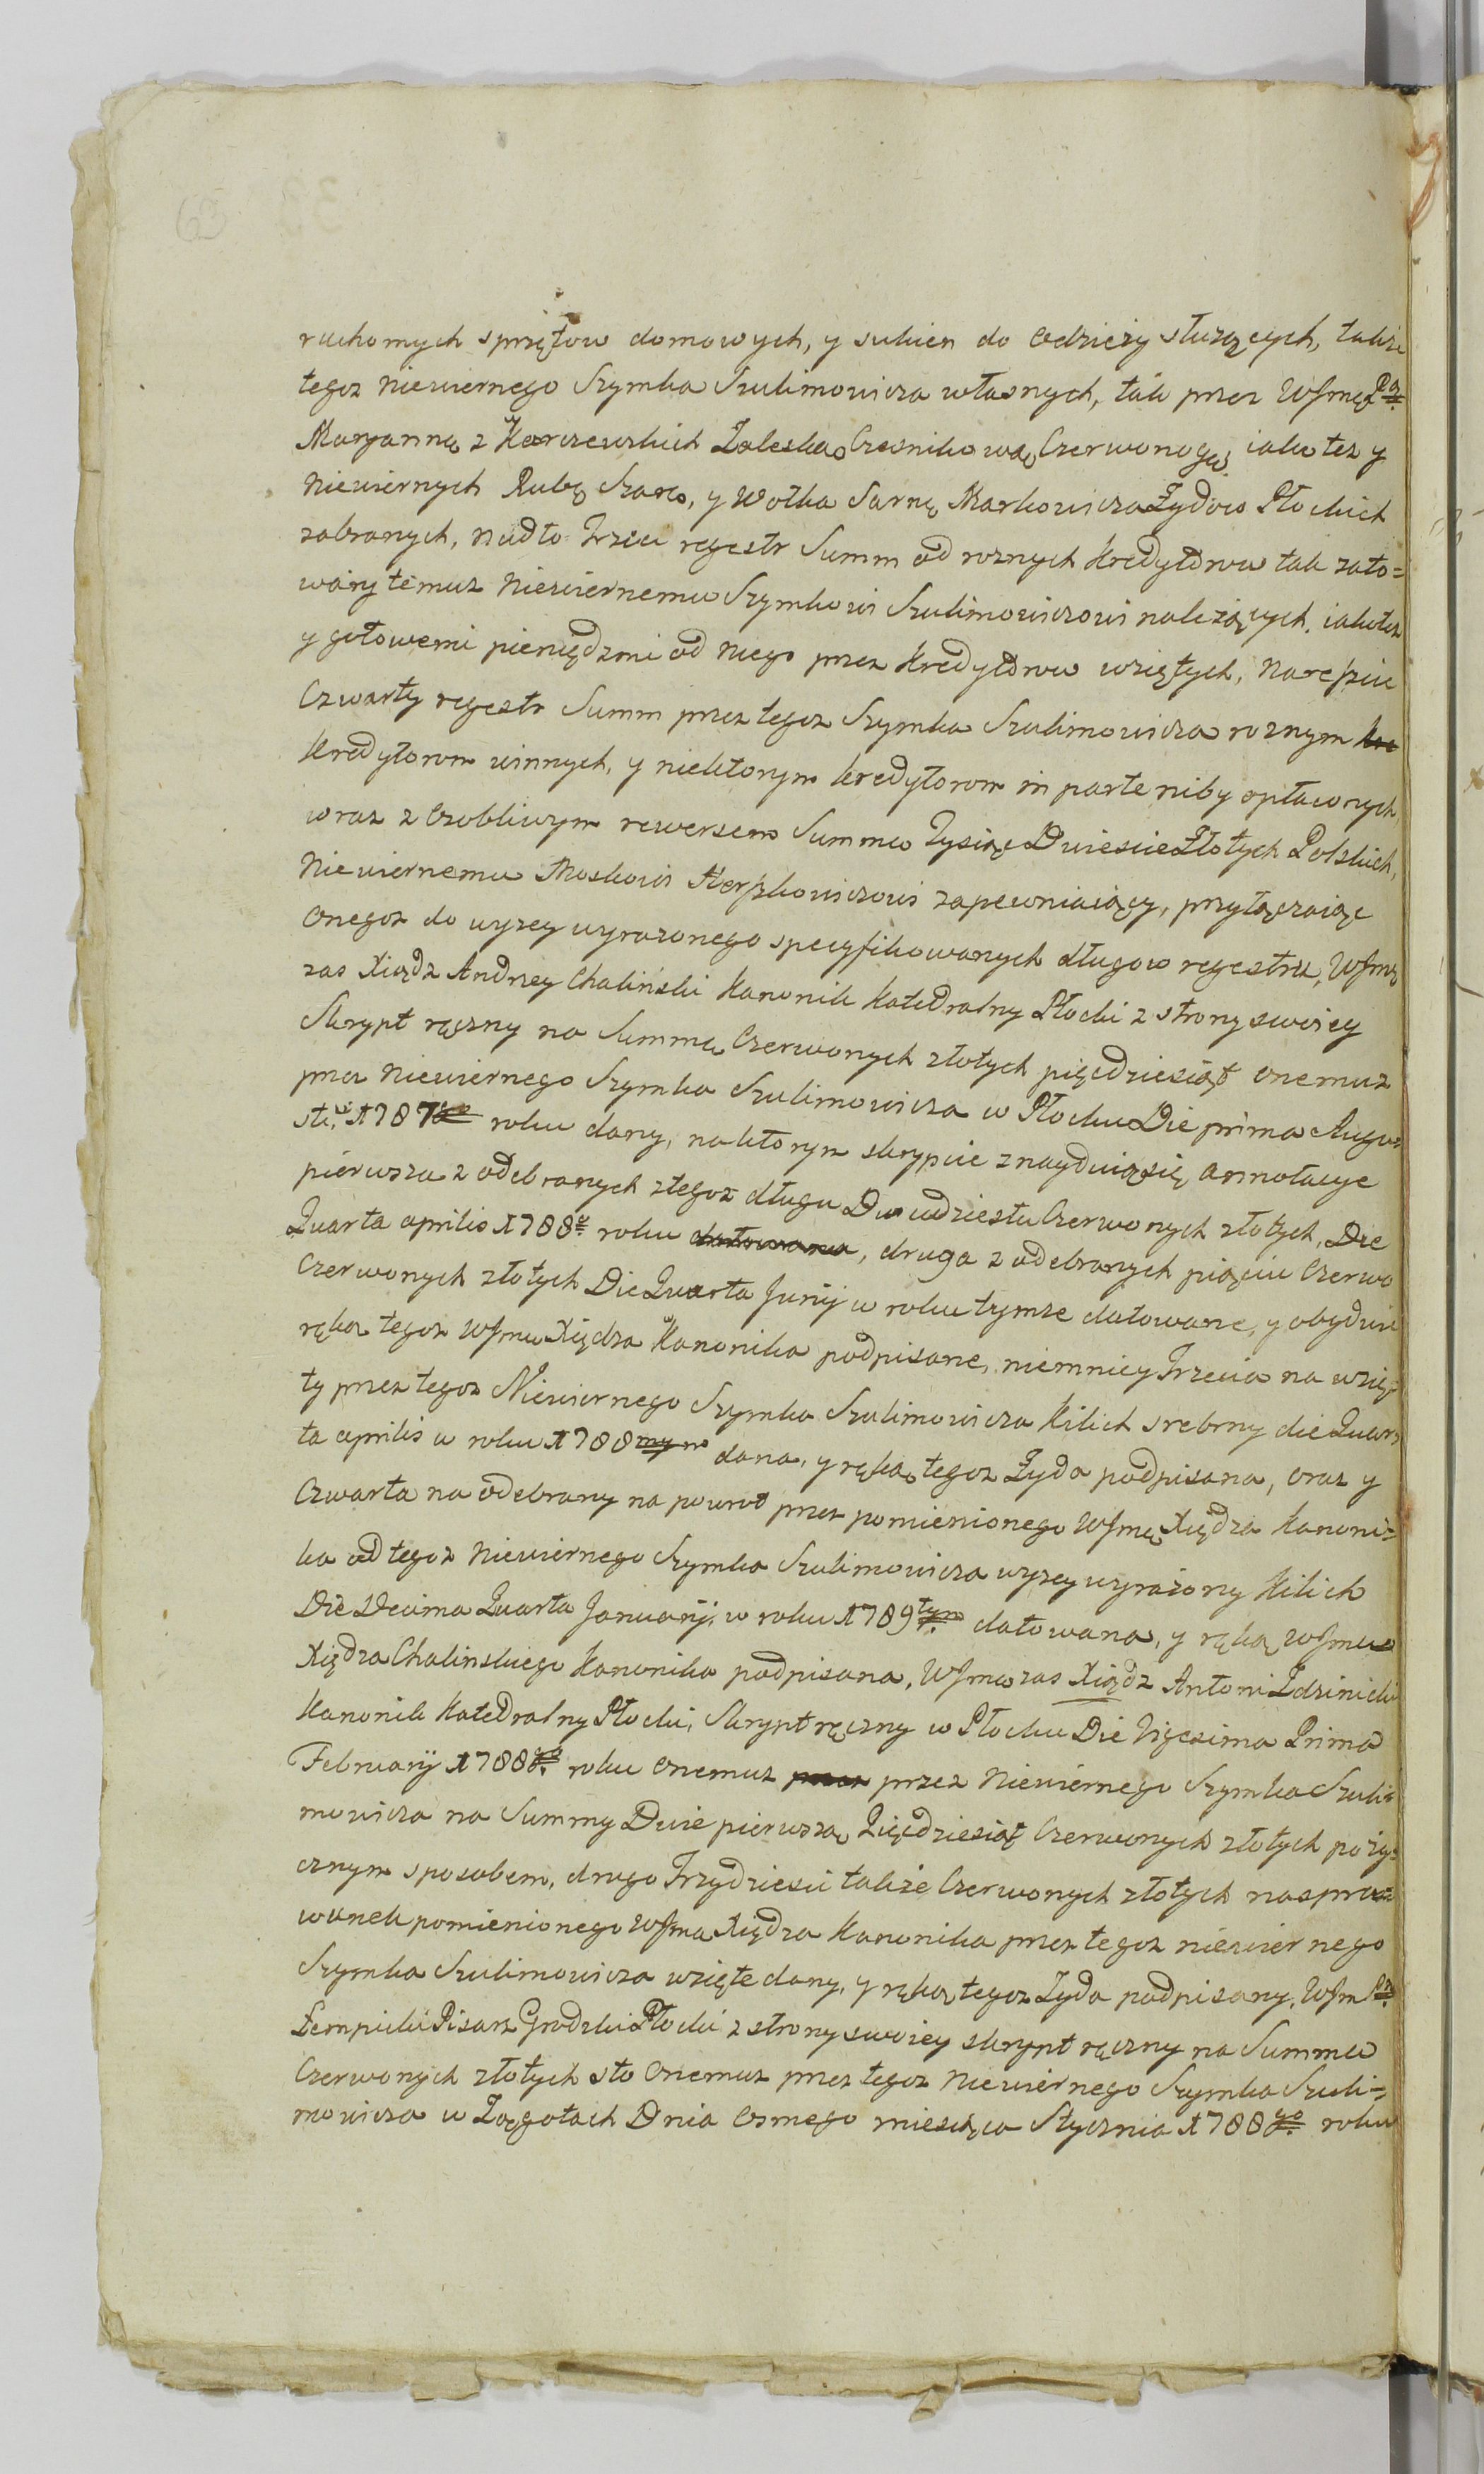 63
ruchomych sprzętow domowych, y sukien do odzieży służących, także
tegoz niewiernego Szymka Szulimowicza własnych, tak przez WJmę Pą
Maryannę z Karczewskich Zaleską Czesnikową Czerwonogą. iako tez y
niewiernych Rubę Szaro, y Wolka Sarnę Markowicza Zydow Płockich
zabranych, nadto Trzeci regestr Summ od roznych Kredytorow tak zato=
wary temuz niewiernemu Szymkowi Szulimowiczowi należących, iakotez
y gotowemi pieniędzmi od niego przez Kredytorow wziętych, nareszcie
Czwarty regestr Summ przez tegoz Szymka Szulimowicza roznym kre
Kredytorom winnych, y niektorym kredytorom in parte niby opłaconych,
wraz z osobliwym rewersem Summę Tysiąc Dwiescie Złotych Polskich,
Niewiernemu Moskowi Herszkowiczowi zapewniaiący, przyłączaiąc
onegoz do wyzey wyrazonego specyfikowanych długow regestru, WJmę
zas Xiądz Andrzey Chaliński Kanonik Katedralny Płocki z strony swoiey
Skrypt ręczny na Summę Czerwonych złotych pięcdziesiąt onemuz
przez niewiernego Szymka Szulimowicza w Płocku Die prima Augu=
sti 1787 roku dany, na ktorym skrypcie znayduią się annotacye
pierwsza z odebranych ztegoz długu Dwudziestu Czerwonych złotych, Die
Quarta aprilis 1788 roku datowana, druga z odebranych pięciu Czerwo
Czerwonych złotych Die Quarta Junij w roku tymze datowane, y obydwie
ręką tegoz WJmę Xiędza Kanonika podpisane, niemniey Trzecia na wzię=
ty przez tegoz Niewiernego Szymka Szulimowicza Kilich srebrny die Quar=
ta aprilis w roku 1788mym dana, y ręką tegoz Zyda podpisana, oraz y
Czwarta na odebrany na powrot przez pomienionego WJmę Xiędza Kanoni=
ka od tegoz niewiernego Szymka Szulimowicza wyzey wyrażony Kilich
Die Decima Quarta Januarij, w roku 1789tym datowana, y ręką WJmę
Xiędza Chalinskiego Kanonika podpisana, WJmę zas Xiądz Antoni Zdzinicki
Kanonik Katedralny Płocki, Skrypt ręczny w Płocku Die Vigesima Prima
February 1788go roku onemuz przez przez niewiernego Szymka Szuli=
mowicza na Summy Dwie pierwszą Pięcdziesiąt Czerwonych złotych pozy=
cznym sposobem, drugą Trzydziesci także Czerwonych złotych na spra=
wunek pomienionego WJma Xiędza Kanonika przez tegoz niewiernego
Szymka Szulimowicza wzięte dany, y ręką tegoz Zyda podpisany, WJm Pn
Lempicki Pisarz Grodzki Płocki z strony swoiey skrypt ręczny na Summę
Czerwonych złotych sto onemuz przez tegoz niewiernego Szymka Szuli=
mowicza w Zągotach Dnia osmego miesiąca Stycznia 1788go roku